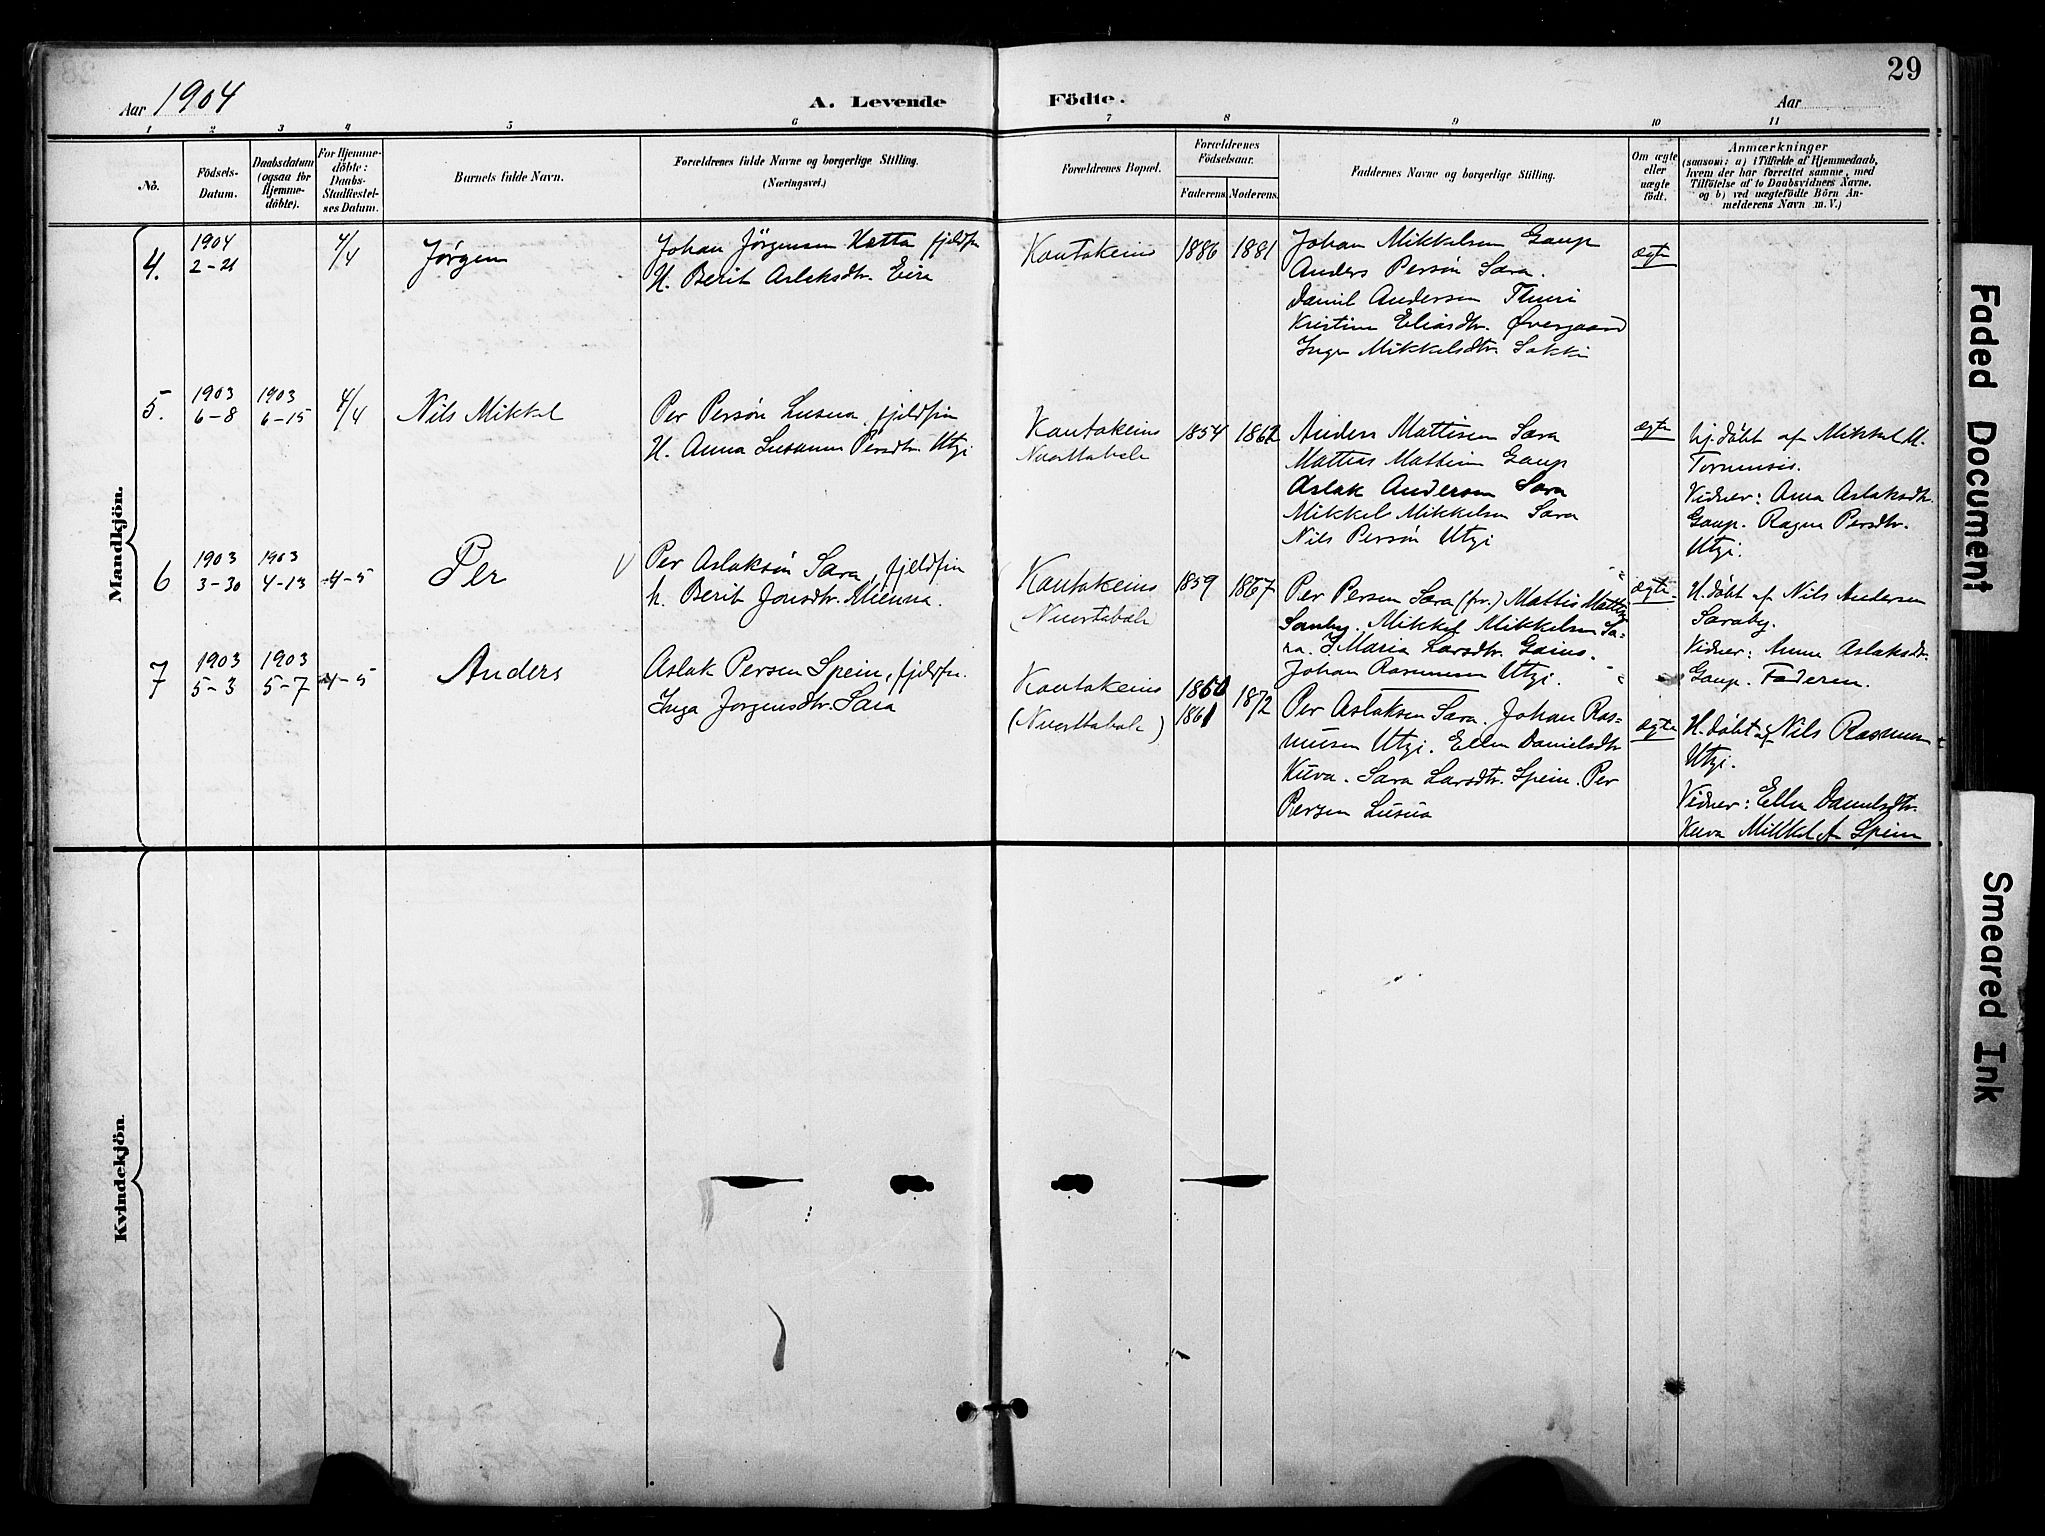 29
Aar 1904
A. Levende Födte.
Aar
1 2 3 4 5 6 7 8 9 10 11
No.
Födsels-
Datum.
Daabsdatum
(ogsaa for
Hjemme-
döbte).
For Hjemme-
döbte:
Daabs-
Stadfæstel-
ses Datum.
Barnets fulde Navn.
Forældrenes fulde Navne og borgerlige Stilling.
(Næringsvei.)
Forældrenes Bopæl.
Forældrenes
Födselsaar.
Faderens.
Moderens.
Faddernes Navne og borgerlige Stilling.
Om ægte
eller
uægte
födt.
Anmærkninger
(saasom: a) i Tilfælde af Hjemmedaab,
hvem der har forrettet samme, med
Tilföielse af to Daabsvidners Navne.
og b) ved uægtefödte Börn An-
melderens Navn m. V.)
Mandkjön.
4.
1904
2-21
4/4
Jørgen
Johan Jørgensen Hætta fjeldfin
H. Berit Aslaksdtr. Eira
Kautokeino
1886
1881
Johan Mikkelsen Gaup
Anders Persøn Sara.
Daniel Andersen Thuri
Kristine Eliasdtr. Øvergaard
Inger Mikkelsdtr. Sokki
ægte
5.
1903
6-8
1903
6-15
4/4
Nils Mikkel
Per Persøn Lusua, fjeldfin
H. Anna Susanna Persdtr. Utzi
Kautokeino
Nuorttabæle
1854
1862
Anders Mattisen Sara
Mathis Mattisen Gaup
Aslak Andersen Sara
Mikkel Mikkelsen Sara
Nils Persøn Utzi
ægte
Hj. døbt af Mikkel M.
Tornensis.
Vidner: Anna Aslaksdtr.
Gaup. Ragna Persdtr.
Utzi.
6
1903
3-30
1903
4-13
4-5
Per
V
Per Aslaksøn Sara, fjeldfin
h. Berit Jonsdtr. Mienna.
Kautokeino
(Nuortabæle
1859
1867
Per Persen Sara (fr.) Mattis
Saraby. Mikkel Mikkelsen Sa-
ra. Maria Larsdtr. Gaino.
Johan Rasmusen Utzi.
ægte
H. døbt af Nils Andersen
Saraby.
Vidner: Anne Aslaksdtr.
Gaup. Faderen.
7
1903
5-3
1903
5-7
4-5
Anders
Aslak Persen Spein, fjeldfin.
Inga Jørgensdtr. Sara
Kautokeino
(Nuorttabæle)
1860
1861
1872
Per Aslaksen Sara. Johan Ras-
musen Utzi. Ellen Danielsdtr
Kuva. Sara Larsdtr. Spein. Per
Persen Lusua
ægte
H. døbt af Nils Rasmusen
Utzi.
Vidner: Ellen Danielsdtr.
Kuva Mikkel A Spein
Kvindekjön.
Faded Document
Smeared Ink